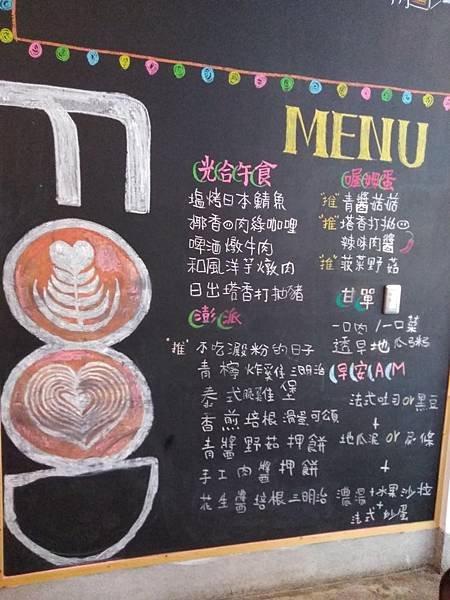 MENU
光合午食
塩烤日本鯖魚
椰香肉綠咖哩
啤酒燉牛肉
和風洋芋燉肉
日出塔香打拋豬
澎派
"推" 不吃澱粉的日子
青檸炸雞三明治
泰式雞堡
香煎培根滑蛋可頌
青醬野菇押餅
手工肉醬押餅
花生醬培根三明治
喔姆蛋
"推" 青醬菇菇
"推" 塔香打拋
辣味肉醬
"推" 菠菜野菇
甘單
一口肉/一口菜
透早地瓜粥
早安AM
法式吐司or黑豆
+
地瓜泥or薯條
+
濃湯+水果沙拉
+
法式炒蛋